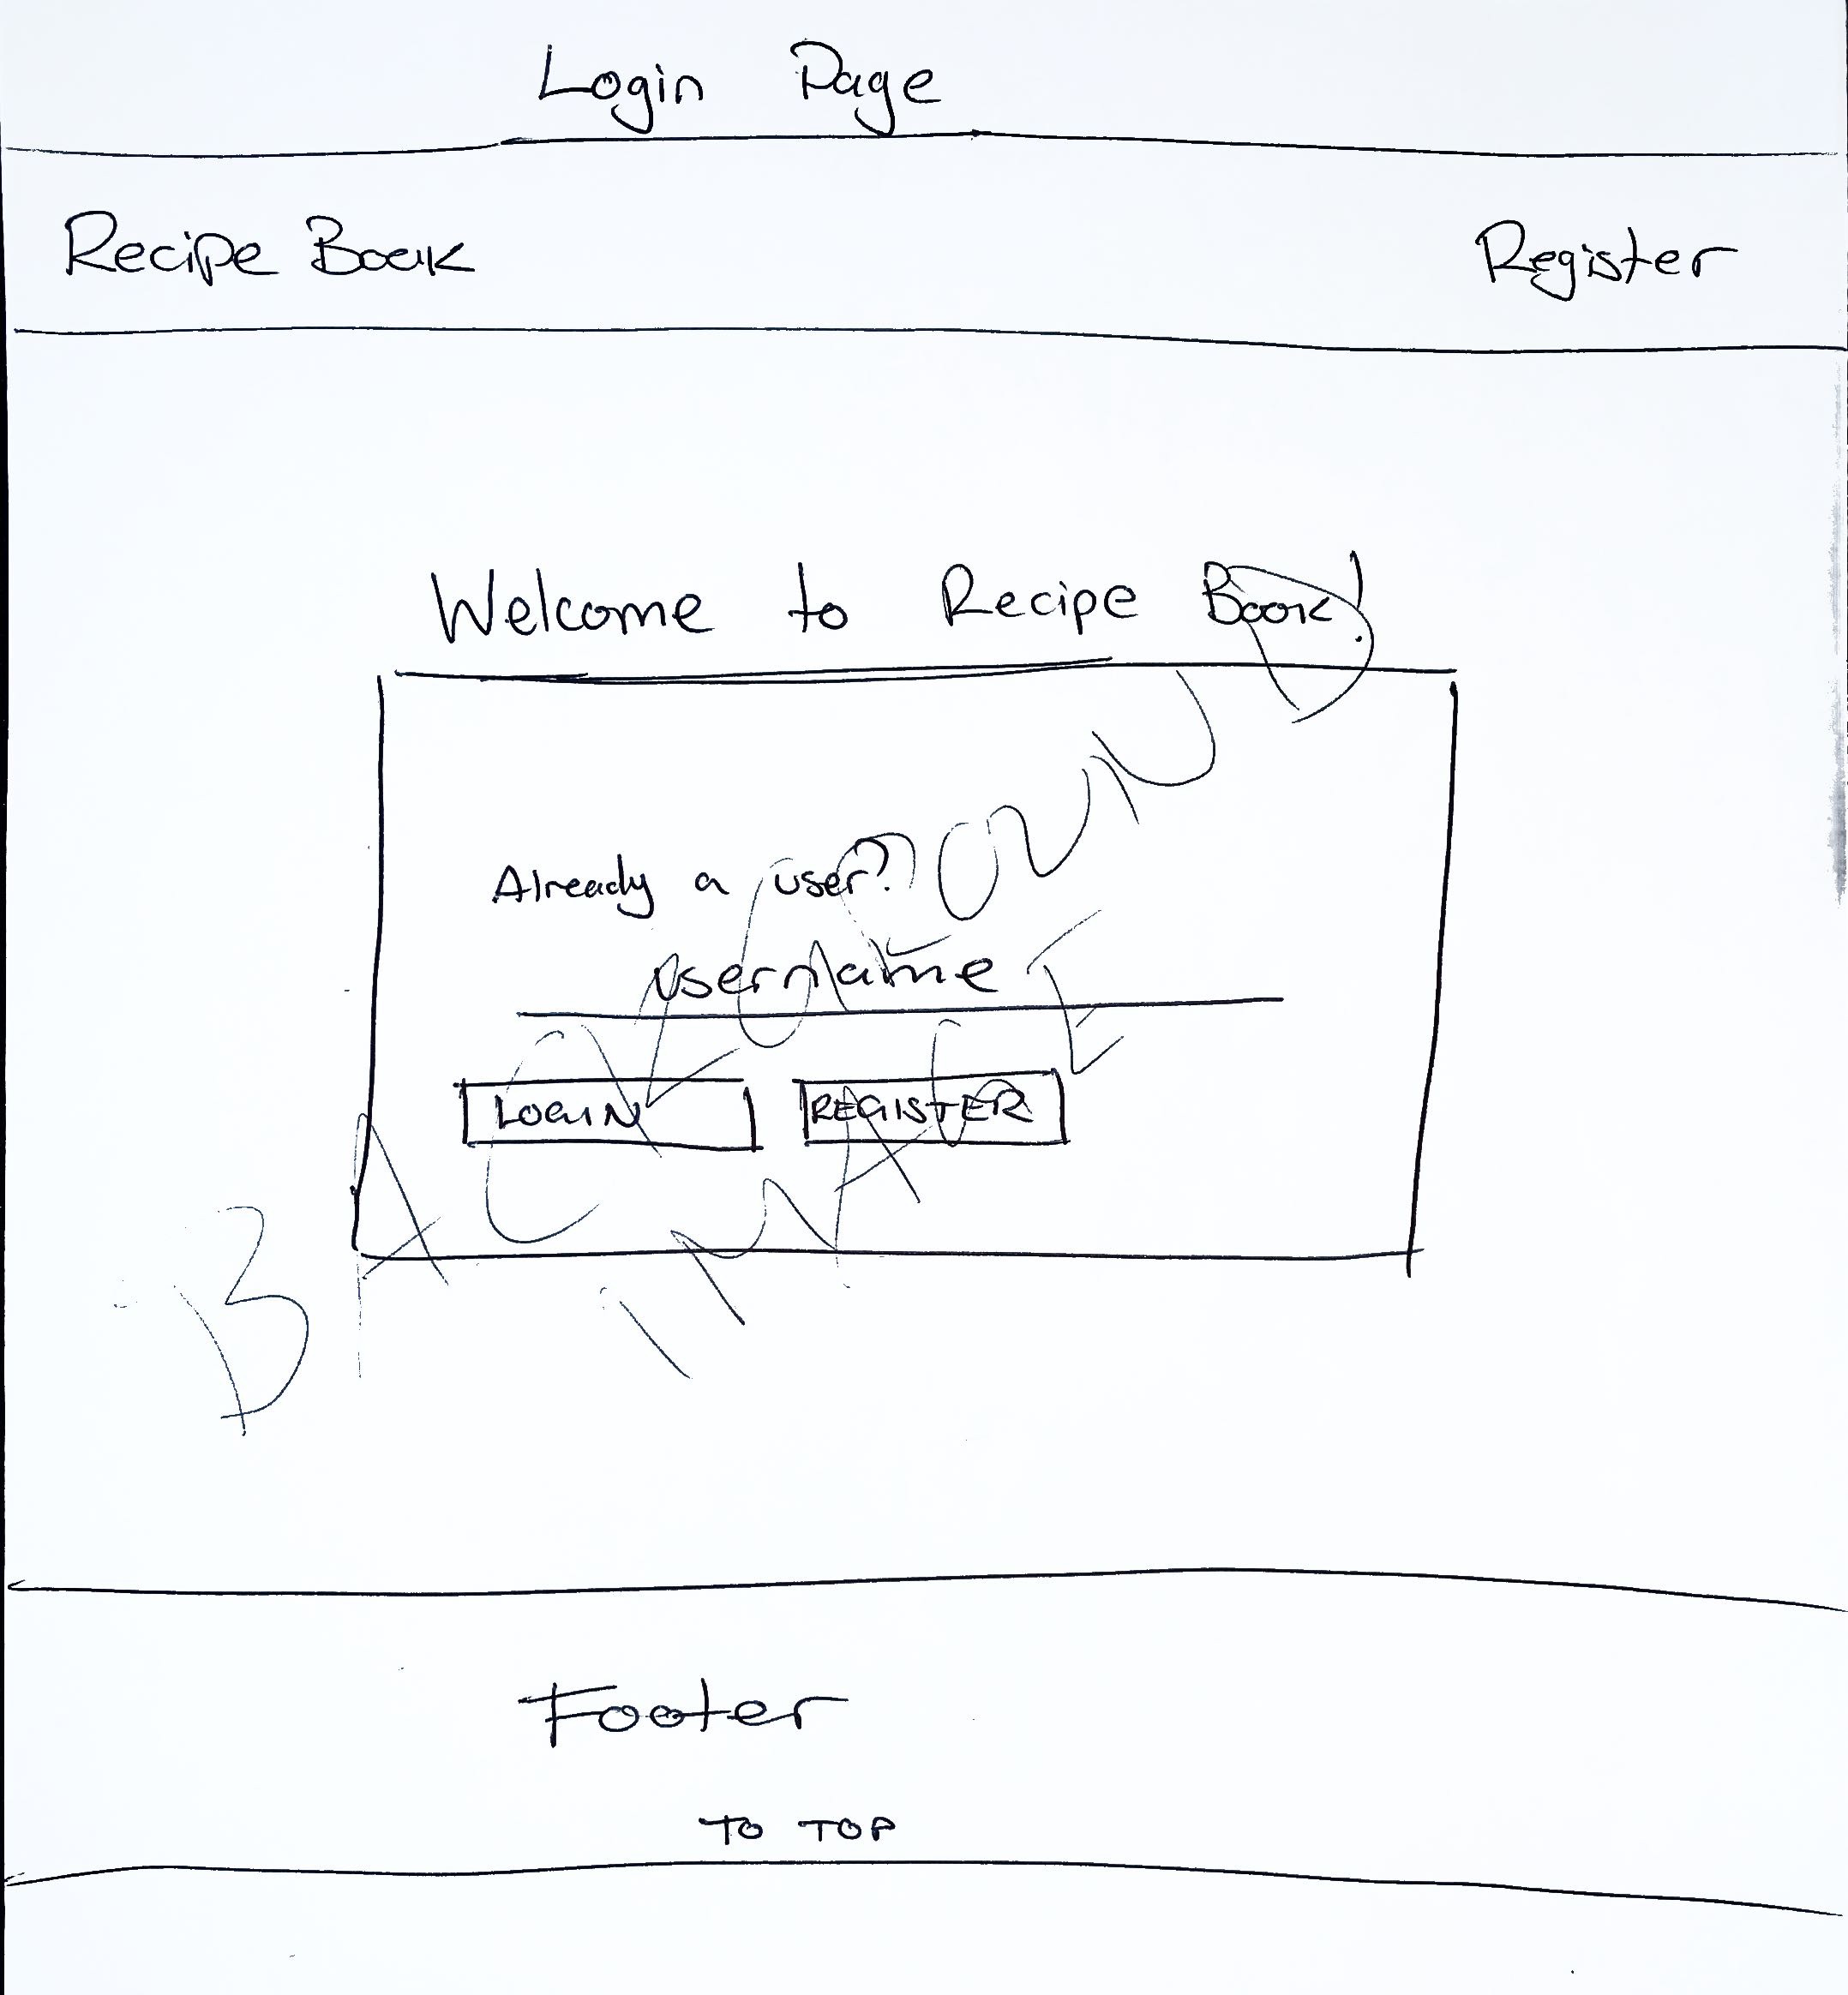 Login Page
Recipe Book
Register
Welcome to Recipe Book!
Already a user?
username
LOGIN
REGISTER
BACKGROUND
IMAGE
Footer
TO TOP